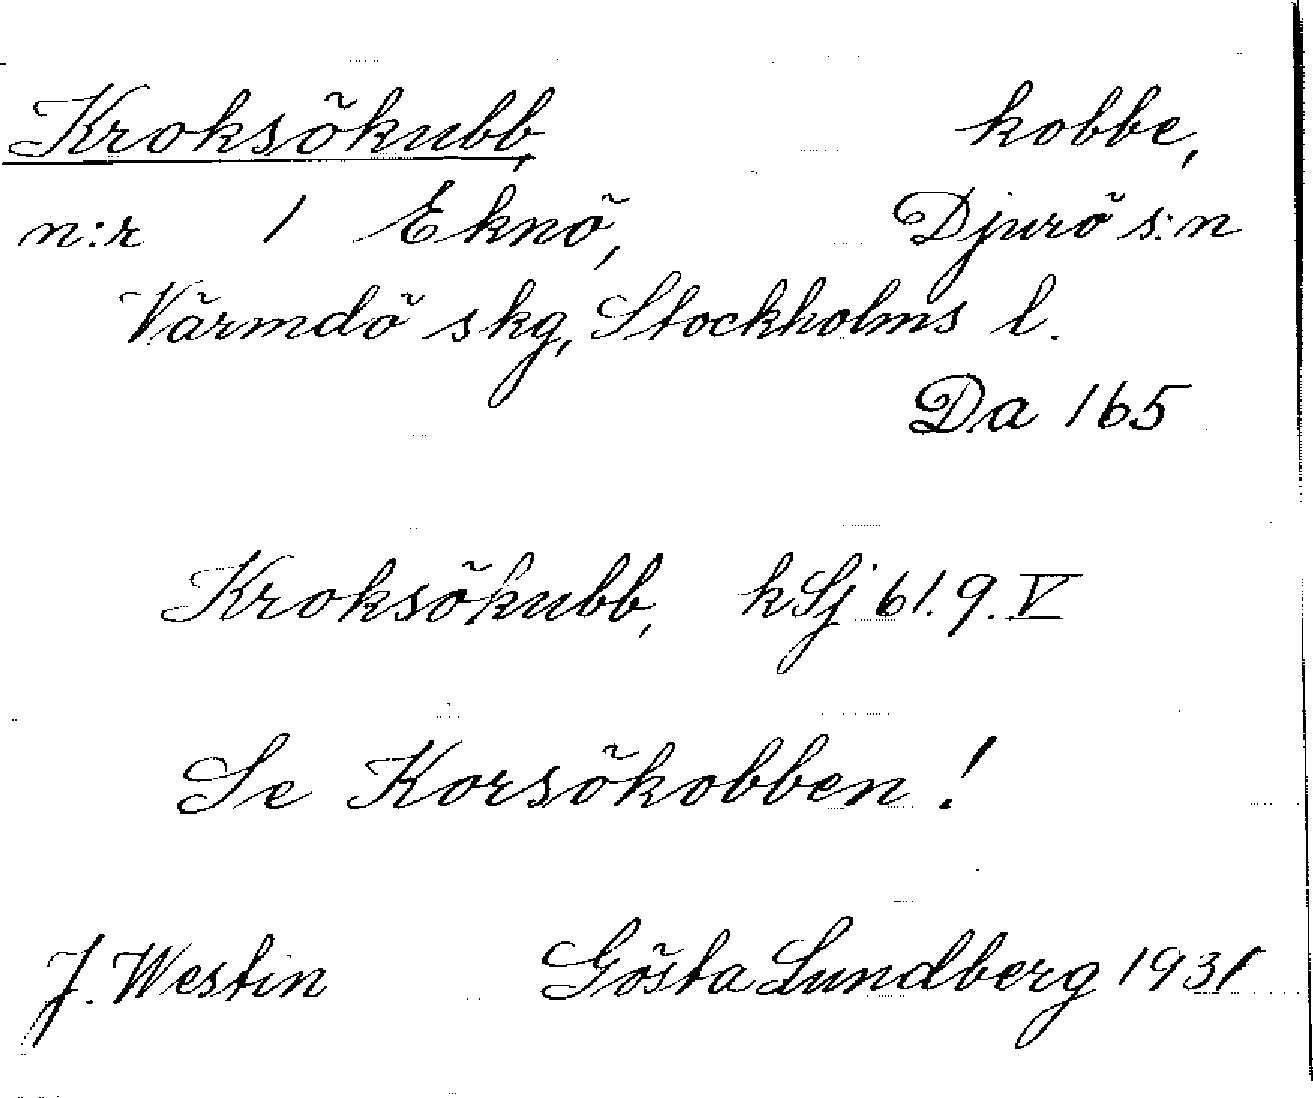 Kroksökubb, kobbe,
n:r 1 Eknö, Djurö s:n
Värmdö skg, Stockholms l.
Da 165
Kroksökubb, hSj 61.9.V
Se Korsökobben!
J. Westin Gösta Lundberg 1931